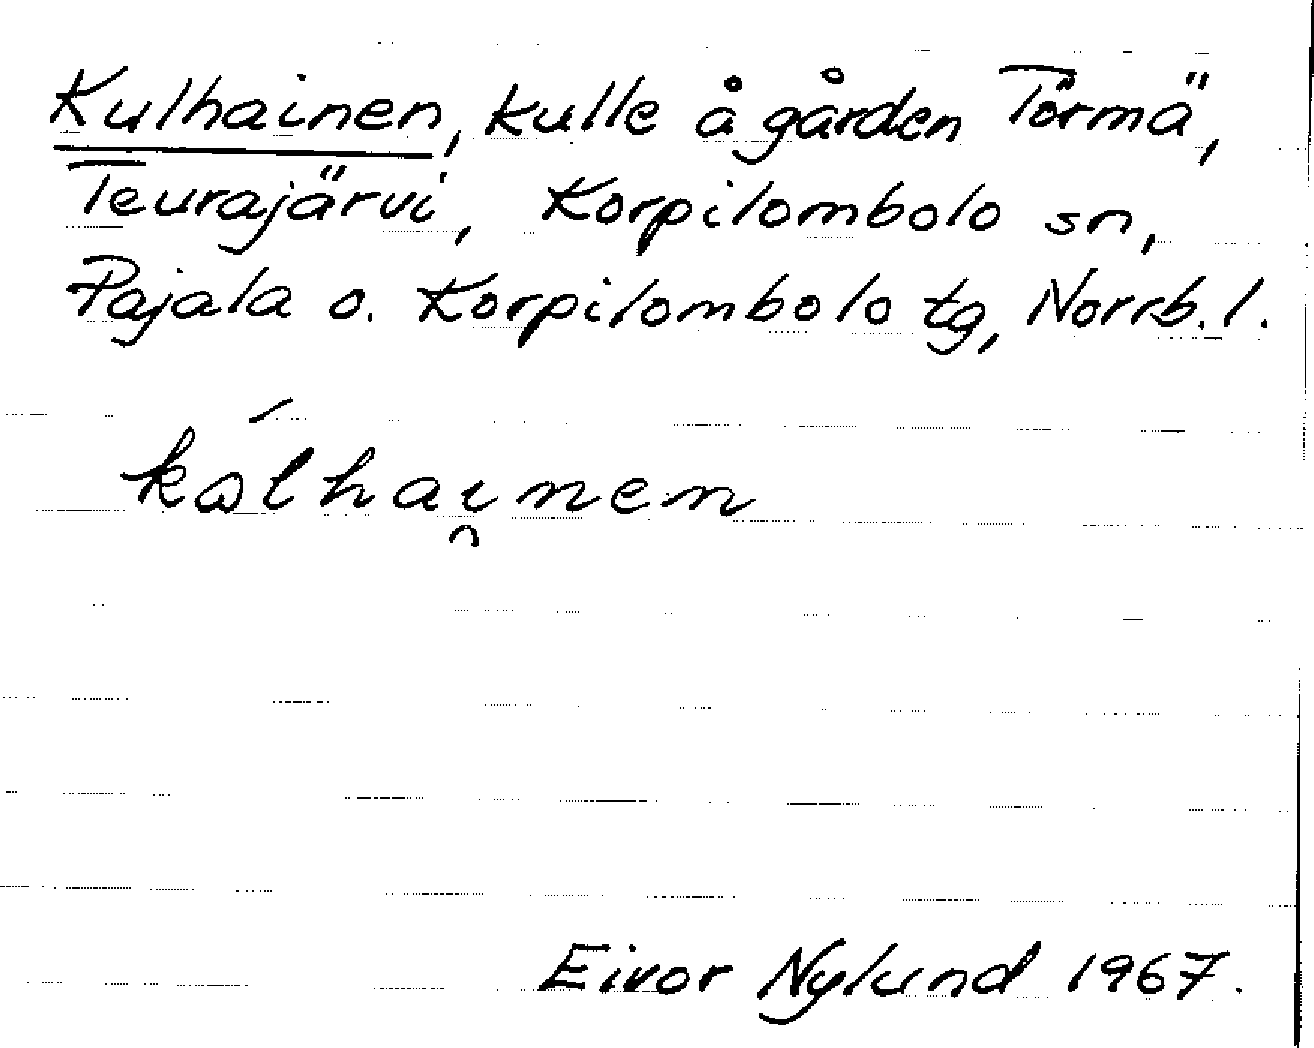 Kulhainen, kulle å gården Törmä,
Teurajärvi, Korpilombolo sn,
Pajala o. Korpilombolo tg, Norrb. l.
kålhai̯nen
Eivor Nylund 1967.